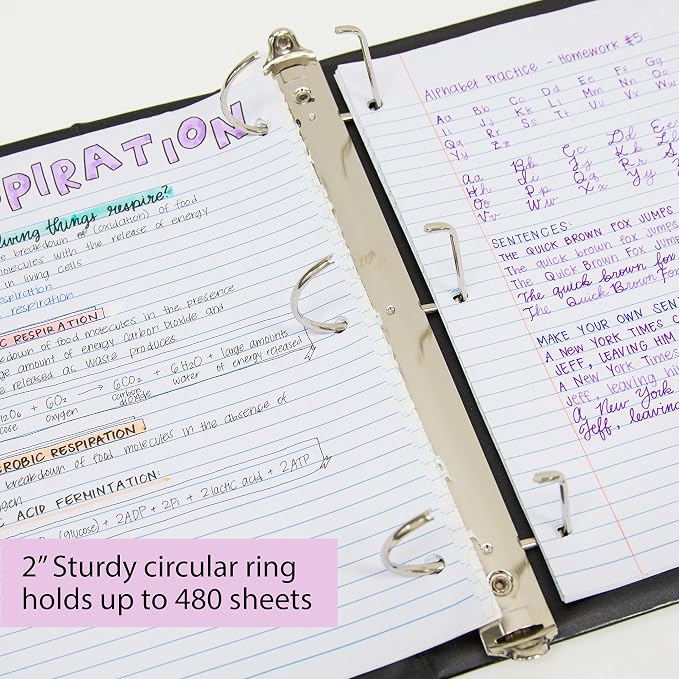 PIRATION
living things respire?
breakdown of (oxidation) of food
molecules with the release of energy
in living cells
respiration
respiration
RESPIRATION
breakdown of food molecules in the presence
amount of energy. Carbon Dioxide and
released as waste products
+ 6O2 → 6CO2 + 6H2O + large amounts
oxygen carbon dioxide water of energy released
EROBIC RESPIRATION
breakdown of food molecules in the absence of
ACID FERMINTATION:
(glucose) + 2ADP + 2Pi → 2 lactic acid + 2ATP
Alphabet Practice - Homework #5
Aa Bb Cc Dd Ee Ff Gg
Ii Jj Kk Ll Mm Nn Oo
Qq Rr Ss Tt Uu Vv
Yy Zz
Aa Bb Cc Dd Ee
Hh Ii Jj Kk
Oo Pp Qq Rr
Vv Ww Xx Yy
SENTENCES:
THE QUICK BROWN FOX JUMPS
The quick brown fox jumps
The Quick Brown Fox Jumps
The quick brown fox
The Quick Brown Fox
MAKE YOUR OWN
A NEW YORK TIMES
JEFF, LEAVING HIM
A New York Times
Jeff, leaving
A New York
Jeff, leaving
2” Sturdy circular ring
holds up to 480 sheets